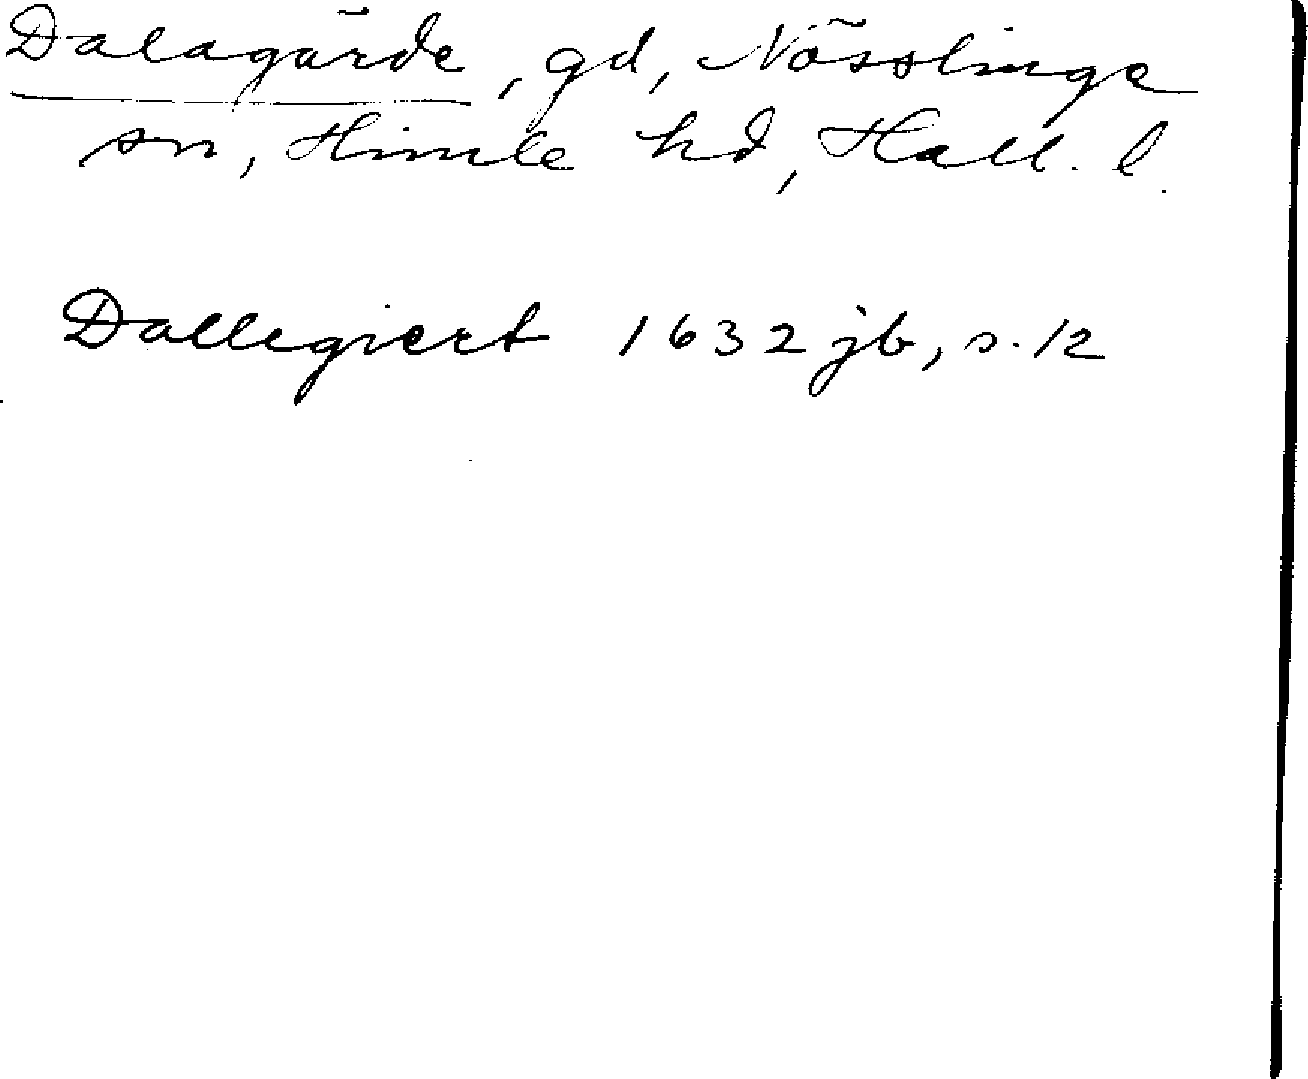 Dalagärde, gd, Nösslinge
sn, Himle hd, Hall. l.
Dallegiert 1632 jb, s. 12